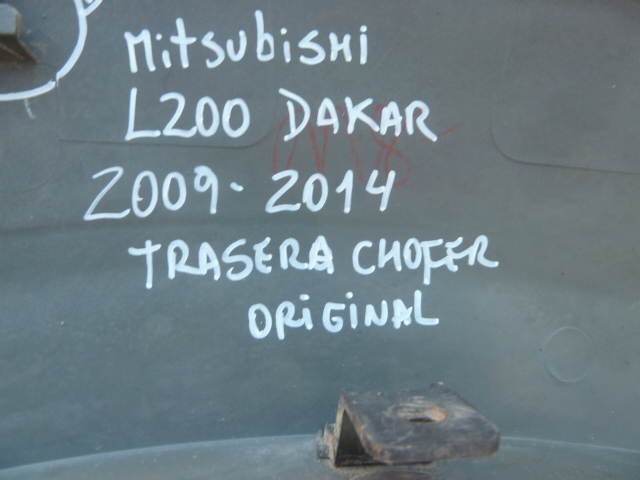 Mitsubishi
L200 DAKAR
2009-2014
TRASERA CHOFER
ORiGiNAL